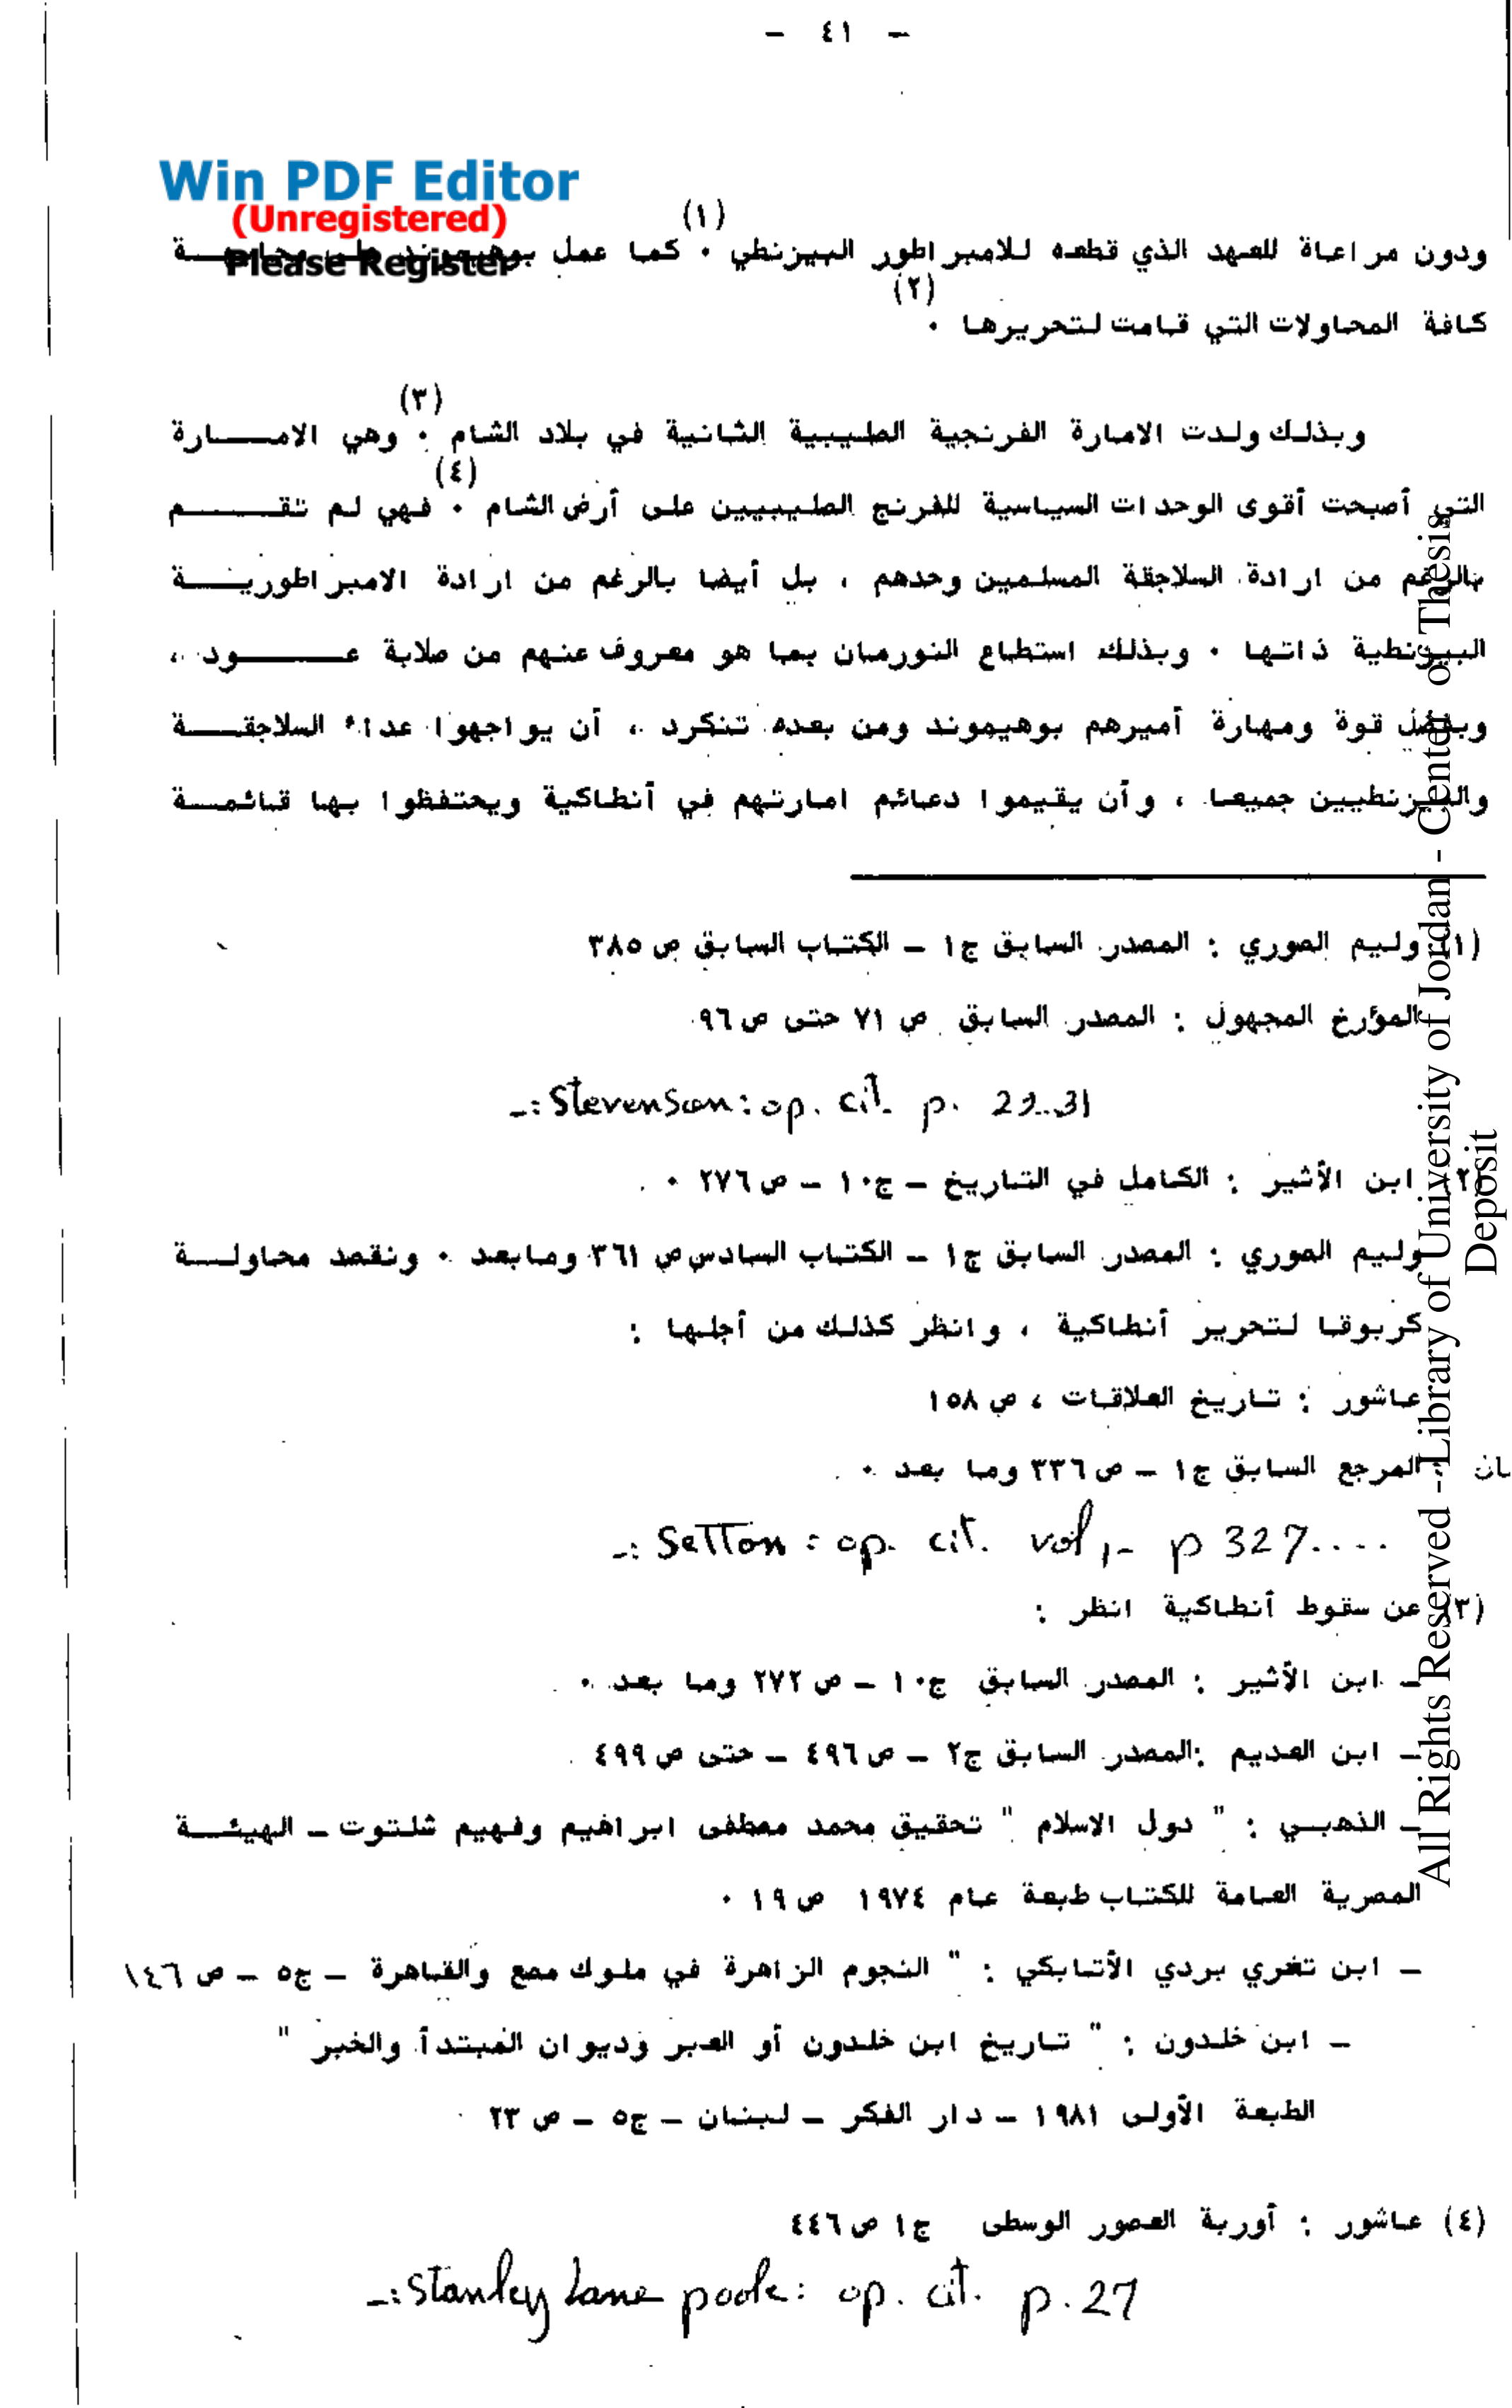 - ٤١ -
Win PDF Editor
(Unregistered)
Please Register
ودون مراعاة للعهد الذي قطعه للامبراطور البيزنطي (١) . كما عمل بوهيموند على
كافة المحاولات التي قامت لتحريرها (٢) .
وبذلك ولدت الامارة الفرنجية الصليبية الثانية في بلاد الشام (٣) . وهي الامــارة
التي أصبحت أقوى الوحدات السياسية للفرنج الصليبيين على أرض الشام (٤) . فهي لم تقــم
بالرغم من ارادة السلاجقة المسلمين وحدهم ، بل أيضا بالرغم من ارادة الامبراطوريــة
البيزنطية ذاتها . وبذلك استطاع النورمان بما هو معروف عنهم من صلابة عــود ،
وبفضل قوة ومهارة أميرهم بوهيموند ومن بعده تنكرد ، أن يواجهوا عداء السلاجقــة
والبيزنطيين جميعا ، وأن يقيموا دعائم امارتهم في أنطاكية ويحتفظوا بها قائمــة
(١) وليم الصوري : المصدر السابق ج١ - الكتاب السابق ص ٣٨٥
المؤرخ المجهول : المصدر السابق ص ٧١ حتى ص ٩٦
-: Stevenson: op. cit. p. 29..31
(٢) ابن الأثير : الكامل في التاريخ - ج١٠ - ص ٢٧٦ .
وليم الصوري : المصدر السابق ج١ - الكتاب السادس ص ٣٦١ ومابعد . ونقصد محاولــة
كربوقا لتحرير أنطاكية ، وانظر كذلك من أجلها :
عاشور : تاريخ العلاقات ، ص ١٥٨
مان : المرجع السابق ج١ - ص ٣٣٦ وما بعد .
-: Setton : op. cit. vol, 1- p 327....
(٣) عن سقوط أنطاكية انظر :
- ابن الأثير : المصدر السابق ج١٠ - ص ٢٧٢ وما بعد .
- ابن العديم : المصدر السابق ج٢ - ص ٤٩٦ - حتى ص ٤٩٩
- الذهبي : " دول الاسلام " تحقيق محمد مصطفى ابراهيم وفهيم شلتوت - الهيئــة
المصرية العامة للكتاب طبعة عام ١٩٧٤ ص ١٩ .
- ابن تغري بردي الأتابكي : " النجوم الزاهرة في ملوك مصع والقاهرة - ج٥ - ص ١٤٦
- ابن خلدون : " تاريخ ابن خلدون أو العبر وديوان المبتدأ والخبر "
الطبعة الأولى ١٩٨١ - دار الفكر - لبنان - ج٥ - ص ٢٣
(٤) عاشور : أوربة العصور الوسطى ج١ ص ٤٤٦
-: Stanley Lane poole: op. cit. p. 27
All Rights Reserved - Library of University of Jordan - Center of Thesis
Deposit